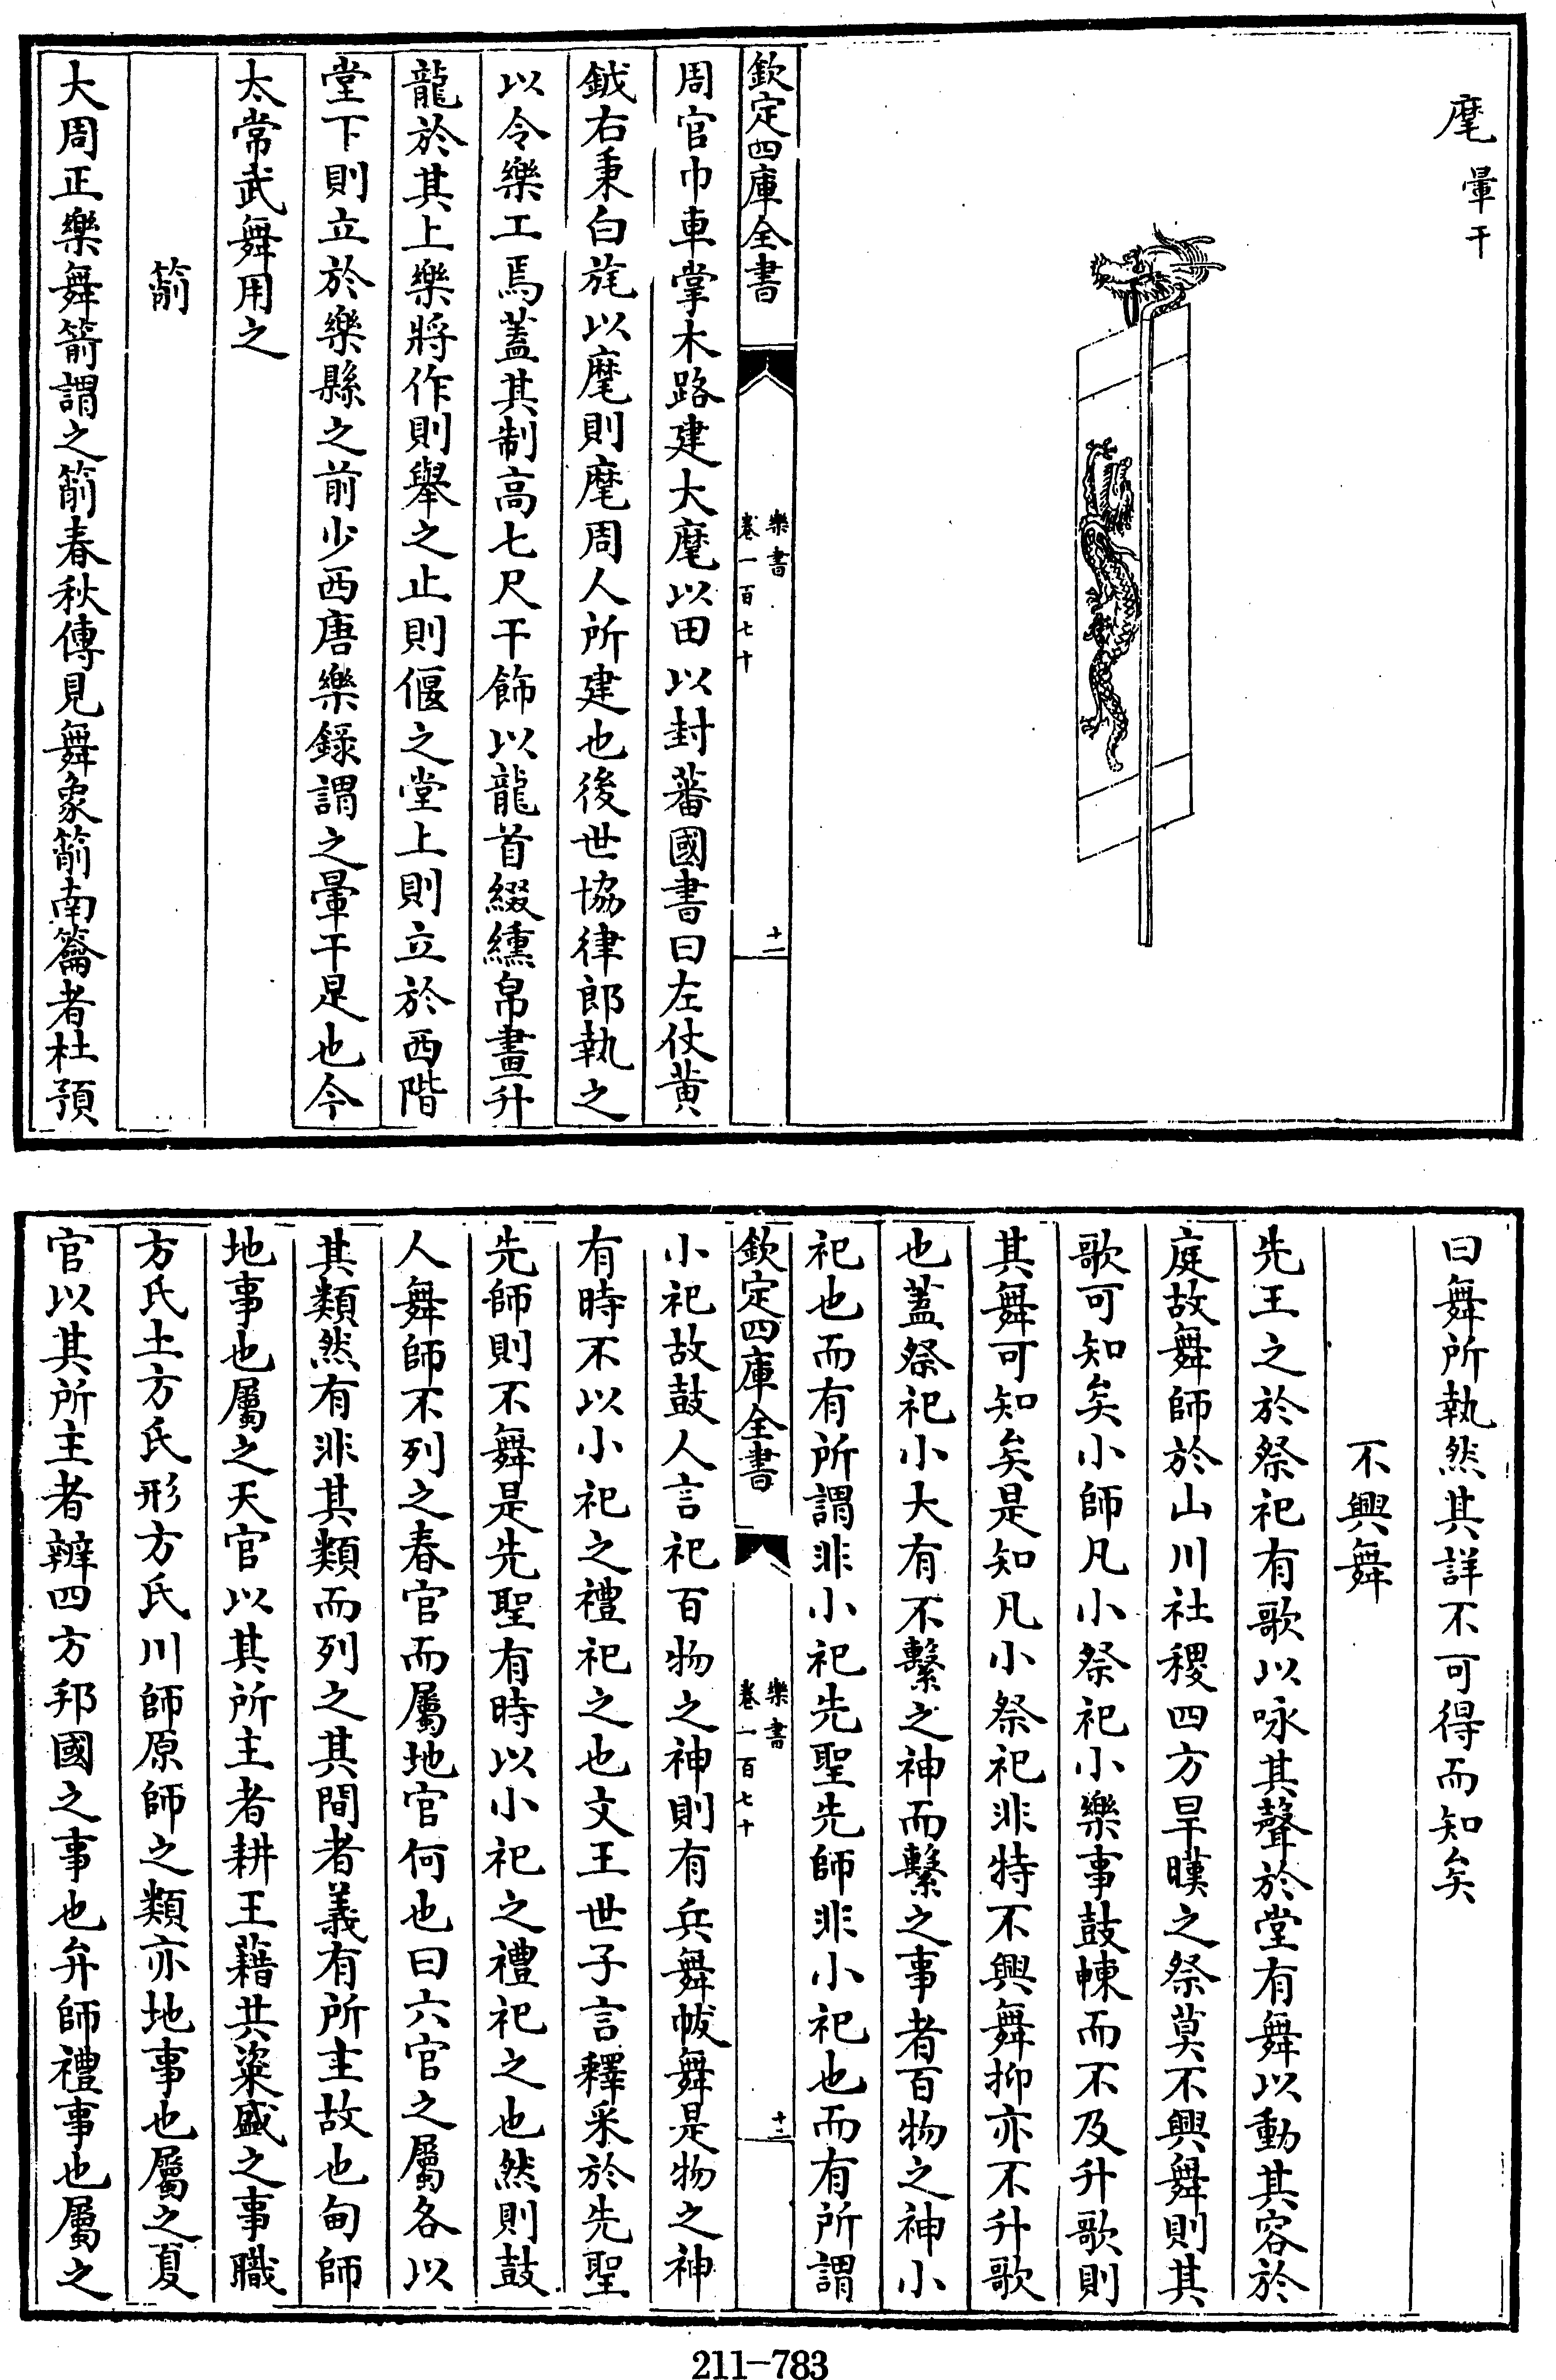 麾 暈干
欽定四庫全書
樂書
卷一百七十
十二
周官巾車掌木路建大麾以田以封蕃國書曰左仗黄
鉞右秉白旄以麾則麾周人所建也後世協律郎執之
以令樂工焉蓋其制高七尺干飾以龍首綴纁帛畫升
龍於其上樂將作則舉之止則偃之堂上則立於西階
堂下則立於樂縣之前少西唐樂録謂之暈干是也今
太常武舞用之
箾
大周正樂舞箭謂之箾春秋傳見舞象箾南籥者杜預
曰舞所執然其詳不可得而知矣
不興舞
先王之於祭祀有歌以咏其聲於堂有舞以動其容於
庭故舞師於山川社稷四方旱暵之祭莫不興舞則其
歌可知矣小師凡小祭祀小樂事鼓朄而不及升歌則
其舞可知矣是知凡小祭祀非特不興舞抑亦不升歌
也蓋祭祀小大有不繫之神而繫之事者百物之神小
祀也而有所謂非小祀先聖先師非小祀也而有所謂
欽定四庫全書
樂書
卷一百七十
十三
小祀故鼓人言祀百物之神則有兵舞帗舞是物之神
有時不以小祀之禮祀之也文王世子言釋采於先聖
先師則不舞是先聖有時以小祀之禮祀之也然則鼓
人舞師不列之春官而屬地官何也曰六官之屬各以
其類然有非其類而列之其間者義有所主故也甸師
地事也屬之天官以其所主者耕王藉共粢盛之事職
方氏土方氏形方氏川師原師之類亦地事也屬之夏
官以其所主者辨四方邦國之事也弁師禮事也屬之
211-783